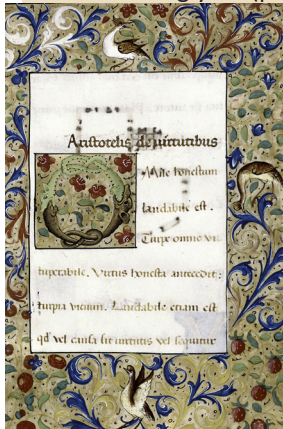 Aristotelis de virtutibus
Omne honestum
laudabile est .
Turpe omne vi
tuperabile. Virtus honesta antecedit:
turpia vicium. Laudabile etiam est
qd vel causa sit virtutis vel sequitur